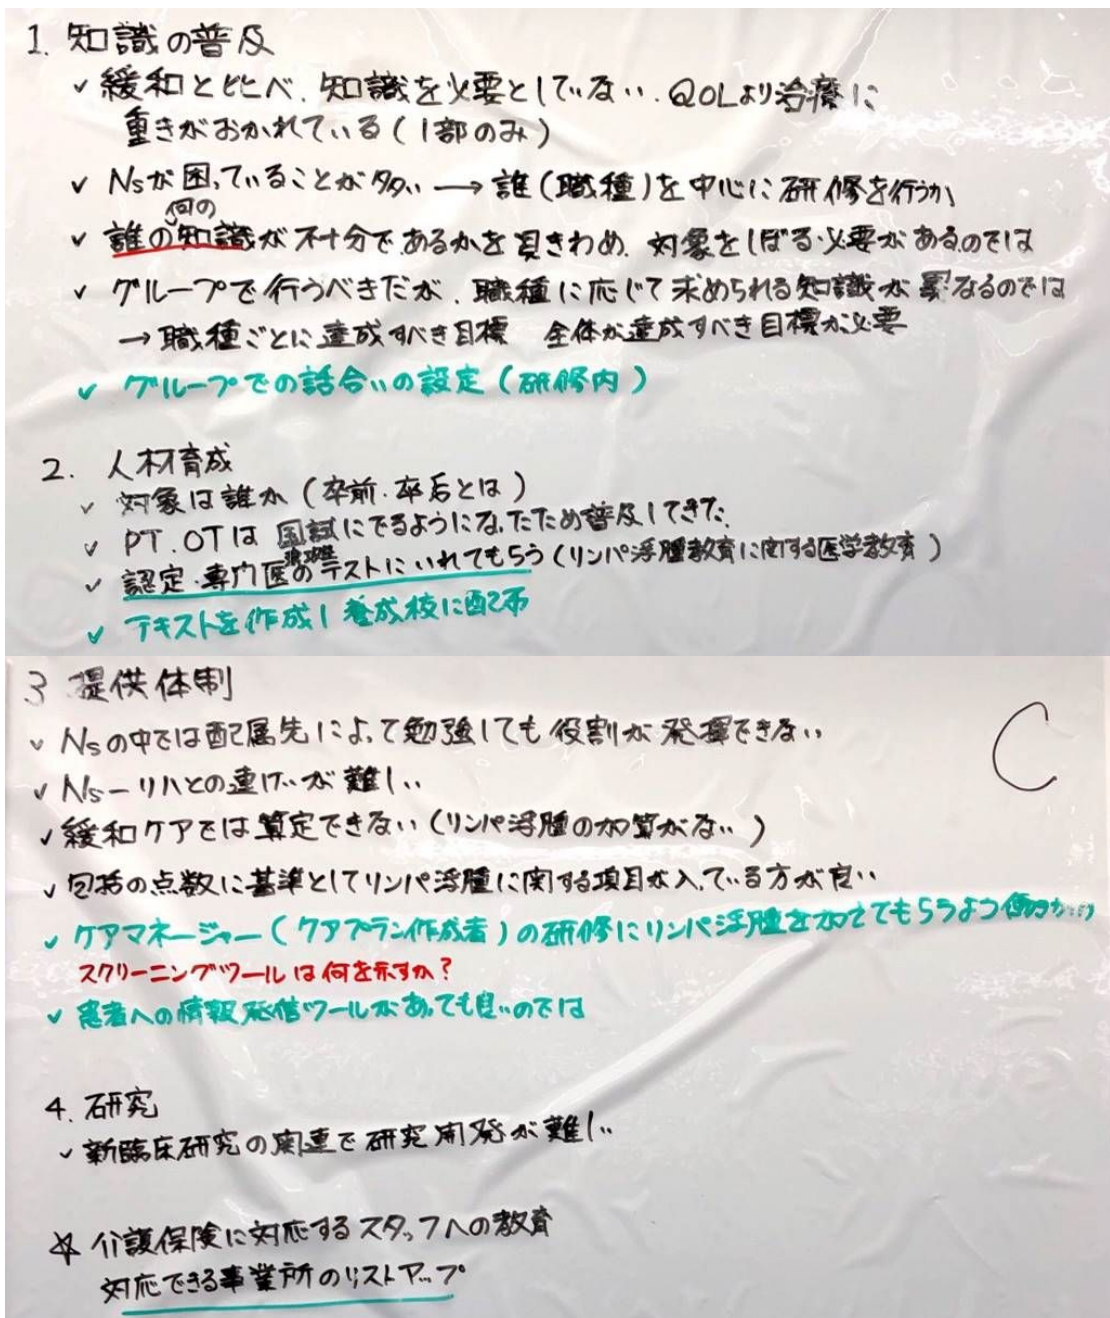 1. 知識の普及
✓ 緩和とくらべ、知識を必要としていない。QOLより治療に
重きがおかれている(1部のみ)
✓ Nsが困っていることが多い → 誰(職種)を中心に研修を行うか
何の
✓ 誰の知識が不十分であるかを見きわめ、対象をしぼる必要があるのでは
✓ グループで行うべきだが、職種に応じて求められる知識が異なるのでは
→ 職種ごとに達成すべき目標 全体が達成すべき目標が必要
✓ グループでの話合いの設定(研修内)
2. 人材育成
✓ 対象は誰か(卒前・卒后とは)
✓ PT.OTは国試にでるようになったため普及してきた
✓ 認定・専門医のテストにいれてもらう(リンパ浮腫教育に関する医学教育)
✓ テキストを作成し養成校に配布
3 提供体制
C
✓ Nsの中では配属先によって勉強しても役割が発揮できない
✓ Ns-リハとの連けいが難しい
✓ 緩和ケアでは算定できない(リンパ浮腫の加算がない)
✓ 包括の点数に基準としてリンパ浮腫に関する項目が入っている方が良い
✓ ケアマネージャー(ケアプラン作成者)の研修にリンパ浮腫を加えてもらうよう働きかけ
スクリーニングツールは何を示すか?
✓ 患者への情報発信ツールがあっても良いのでは
4. 研究
✓ 新臨床研究の関連で研究開発が難しい
☆ 介護保険に対応するスタッフへの教育
対応できる事業所のリストアップ